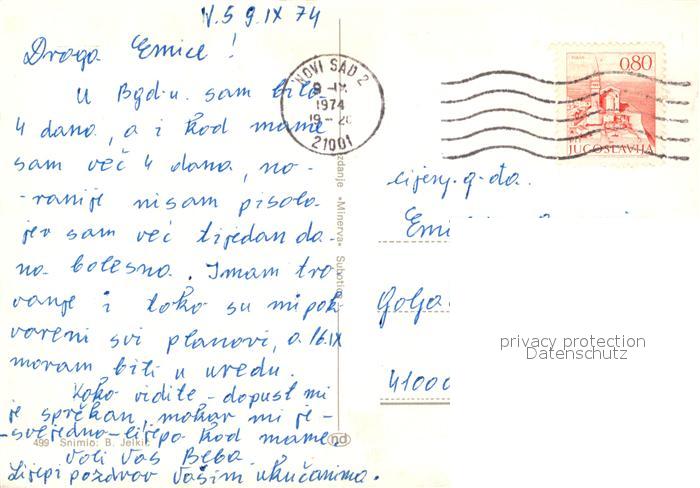 N.S 9.IX 74
Draga Emice!
U Bgd-u sam bila
4 dana, a i kod mame
sam već 4 dana, na-
-ranije nisam pisala
jer sam već tjedan da-
na bolesna. Imam tro-
vanje i tako su mi pok
vareni svi planovi, a. 16.IX
moram biti u uredu.
Kako vidite - dopust mi
je sprčkan, makar mi je -
-svejedno - lijepo kod mame.
Voli Vas Beba
Lijepi pozdrav Vašim ukućanima.
499 Snimio: B. Jelkić
nd
Izdanje «Minerva» Subotica
NOVI SAD 2
9-IX
1974
19-20
21001
0,80
JUGOSLAVIJA
cijenj. g-đa.
Emi
Golja
41000
privacy protection
Datenschutz